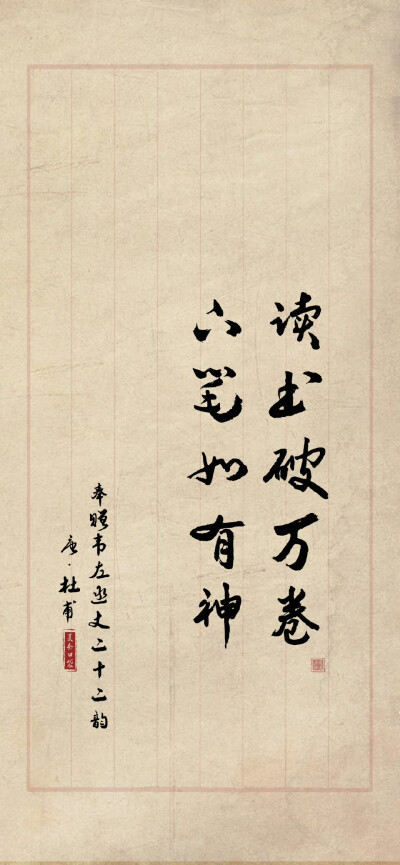 读书破万卷
下笔如有神
奉赠韦左丞丈二十二韵
唐·杜甫